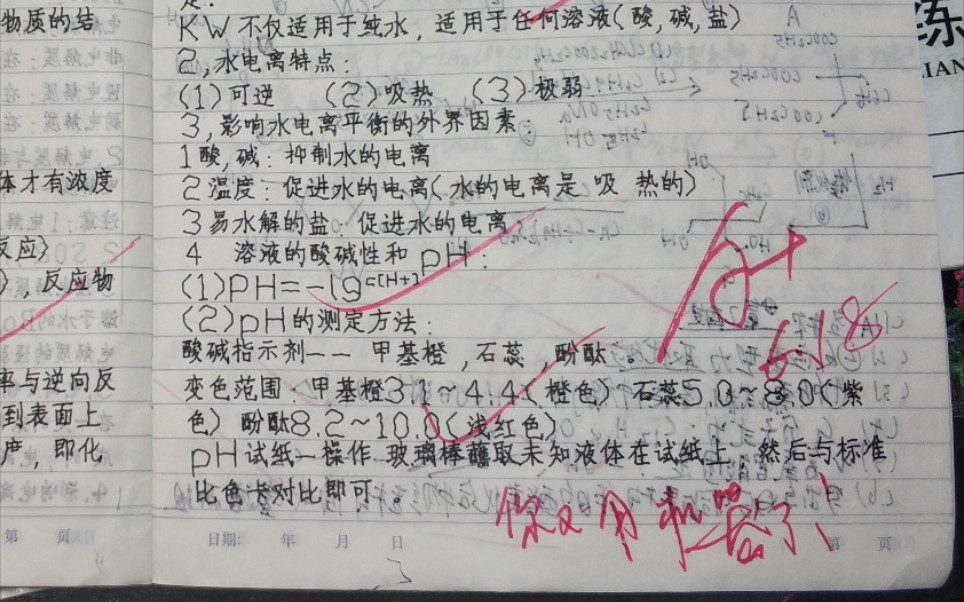 物质的结
体才有浓度
反应)
), 反应物
率与逆向反
到表面上
度, 即化
第 页
KW 不仅适用于纯水, 适用于任何溶液(酸,碱,盐)
2,水电离特点:
(1)可逆 (2)吸热 (3)极弱
3,影响水电离平衡的外界因素:
1酸,碱: 抑制水的电离
2温度: 促进水的电离(水的电离是 吸 热的)
3易水解的盐: 促进水的电离
4 溶液的酸碱性和 pH:
(1)PH=-lg c[H+]
(2)pH的测定方法:
酸碱指示剂—— 甲基橙,石蕊,酚酞
变色范围:甲基橙3.1~4.4(橙色) 石蕊5.0~8.0(紫
色) 酚酞8.2~10.0(浅红色)
pH试纸—操作 玻璃棒蘸取未知液体在试纸上, 然后与标准
比色卡对比即可。
6/18
你又用机器了!
日期: 年 月 日
第 页
3
练
LIAN